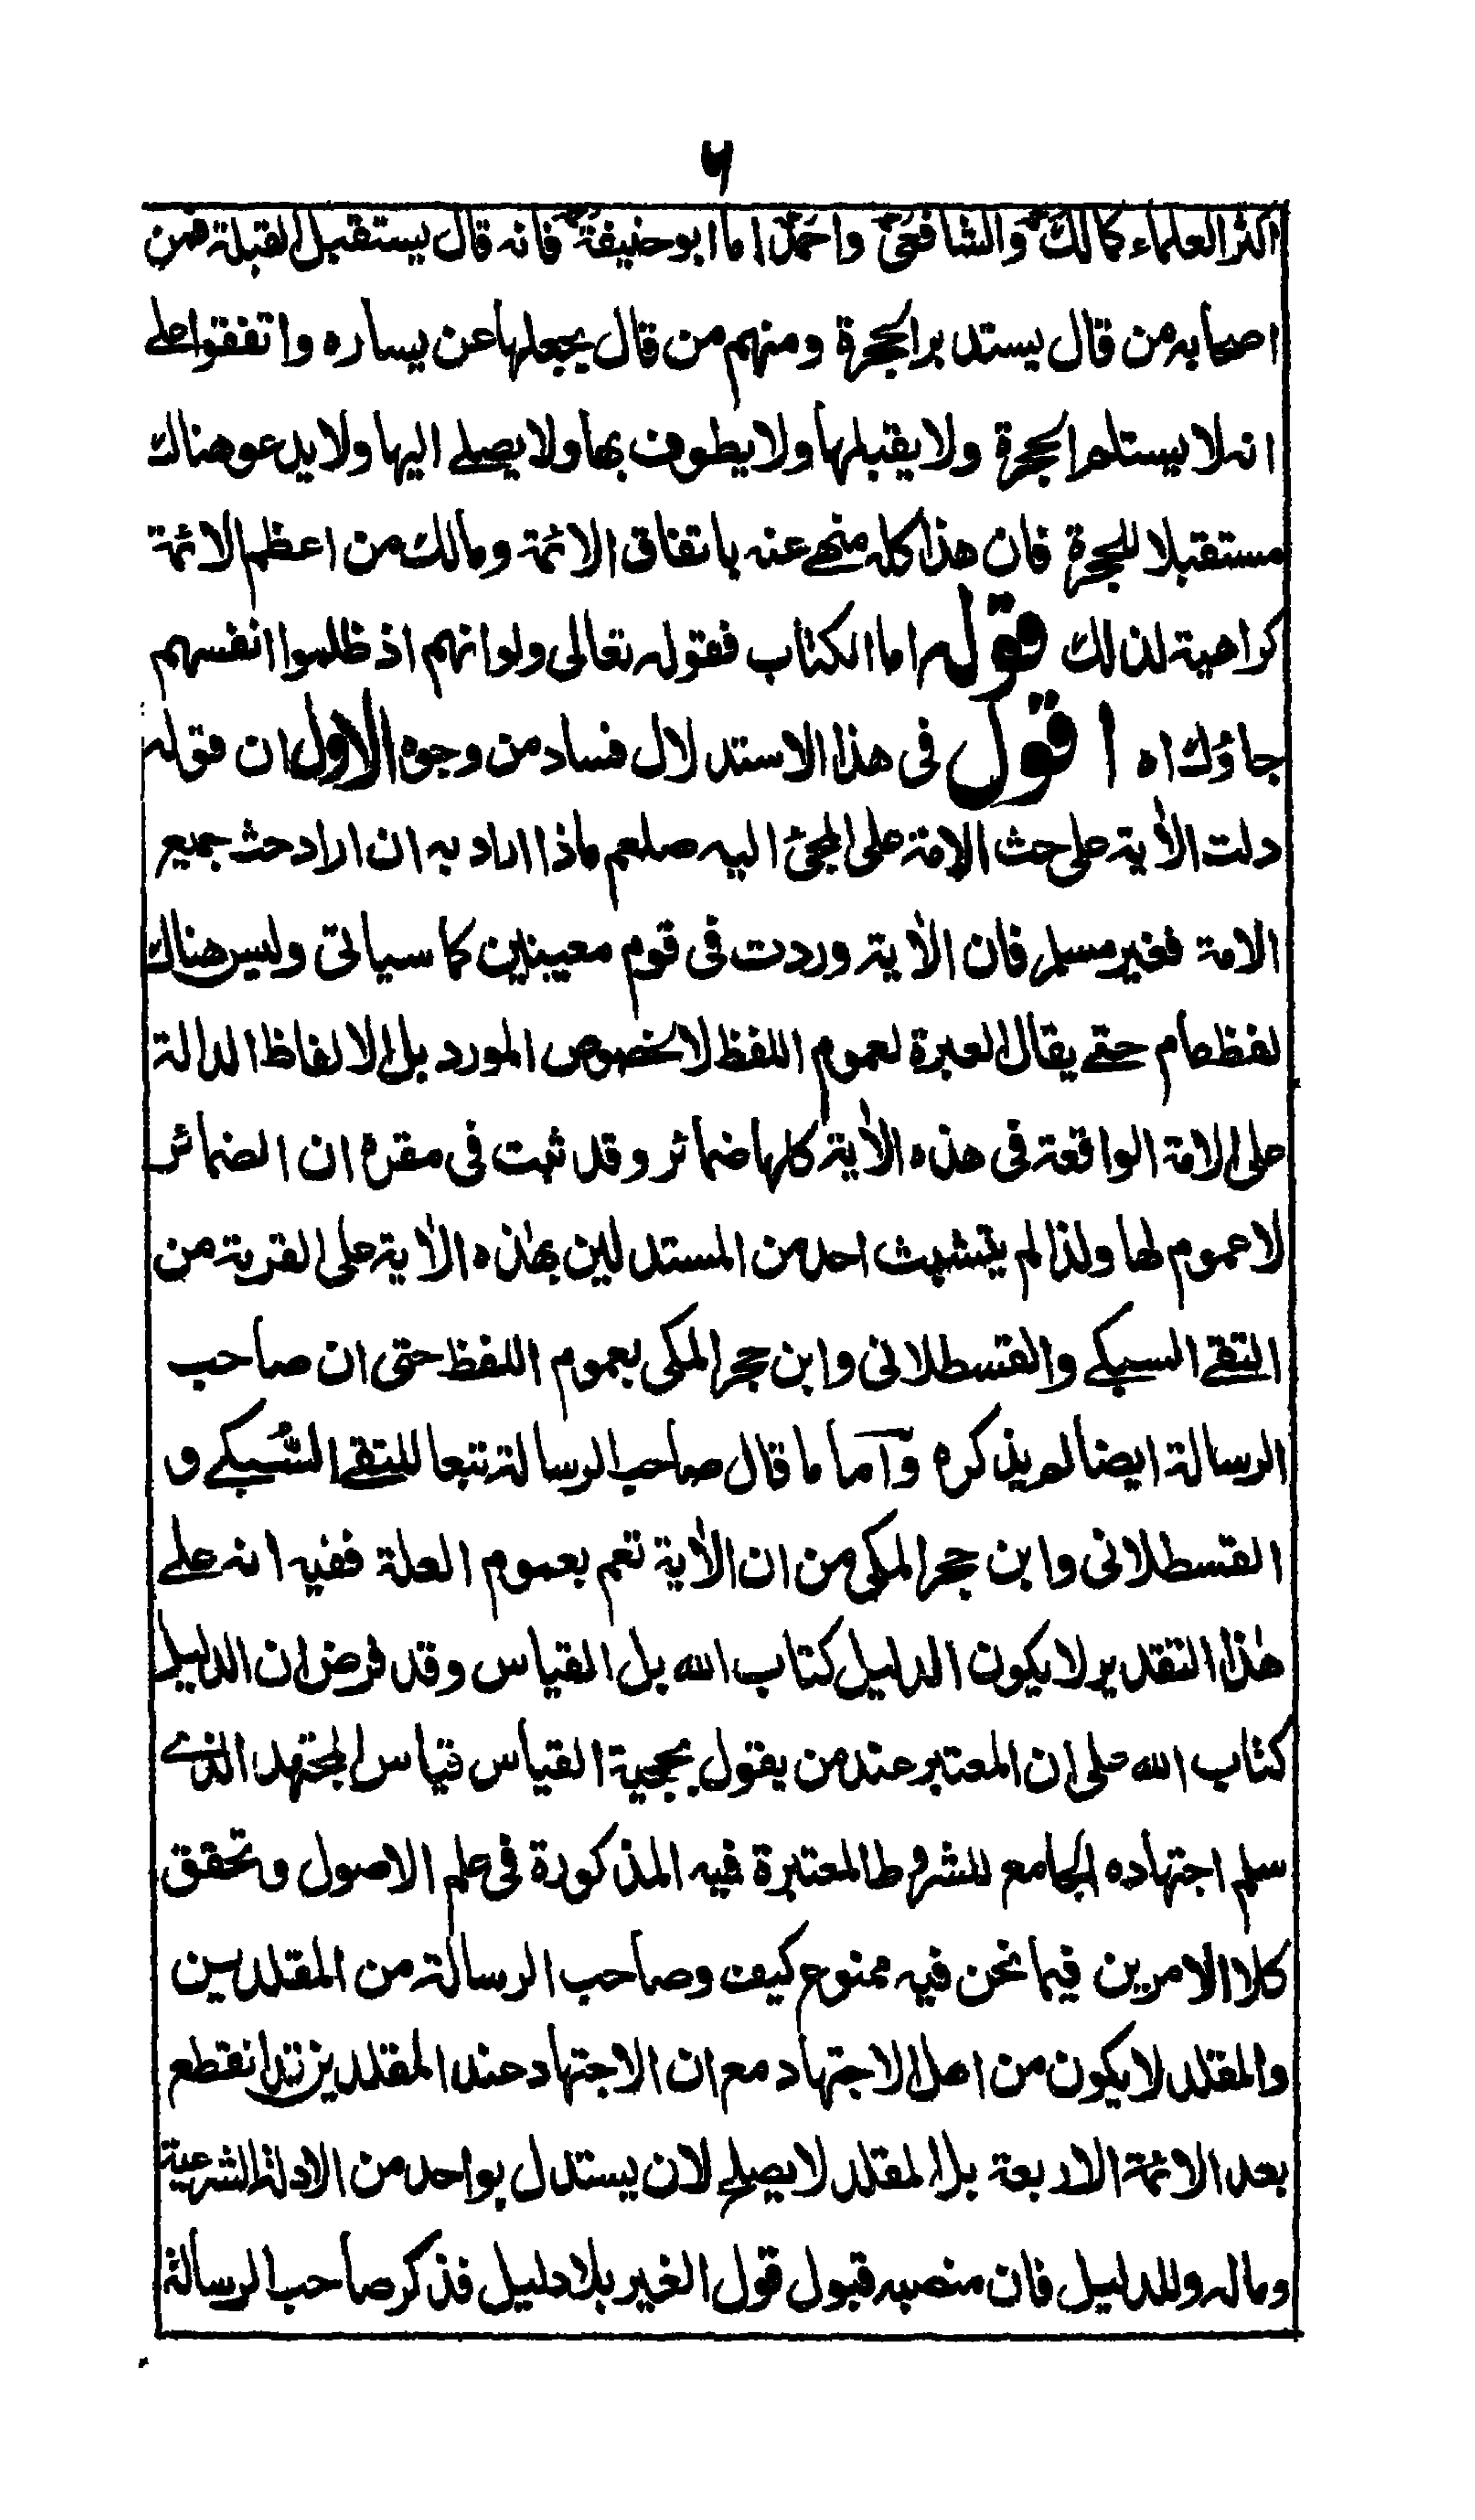 ۶
اكثر العلماء كمالك والشافعي واحمد اما ابو حنيفة فانه قال يستقبل القبلة فمن
اصحابه من قال يستدبر الحجرة ومنهم من قال يجعلها عن يساره واتفقوا على
انه لا يستلم الحجرة ولا يقبلها ولا يطوف بها ولا يصلے اليها ولا يدعو هناك
مستقبلا للحجرة فان هذا كله منهے عنه باتفاق الائمة ومالك من اعظم الائمة
كراهية لذلك قوله اما الكتاب فقوله تعالى ولو انهم اذ ظلموا انفسهم
جاؤك اه اقول فى هذا الاستدلال فساد من وجوه الاول ان قوله
دلت الاٰية على حث الامة على المجئ اليه صلعم ماذا اراد به ان اراد حث جميع
الامة فغير مسلم فان الاٰية وردت فى قوم معينين كما سياتى وليس هناك
لفظ عام حتے يقال العبرة لعموم اللفظ لا لخصوص المورد بل الالفاظ الدالة
على الامة الواقعة فى هذه الاٰية كلها ضمائر وقد ثبت فى مقره ان الضمائر
لا عموم لها ولذا لم يتشبث احد من المستدلين بهذه الاٰية على القربة من
التقے السبكے والقسطلانى وابن حجر المكى بعموم اللفظ حتى ان صاحب
الرسالة ايضا لم يذكره وآما ما قال صاحب الرسالة تبعا للتقے السُّبكے و
القسطلانى وابن حجر المكى من ان الاٰية تعم بعموم العلة ففيه انه علے
هٰذا التقدير لا يكون الدليل كتاب الله بل القياس وقد فرض ان الدليل
كتاب الله على ان المعتبر عند من يقول بحجية القياس قياس المجتهد الذے
سلم اجتهاده الجامع للشروط المعتبرة فيه المذكورة فى علم الاصول وتحقق
كلا الامرين فيما نحن فيه ممنوع كيف وصاحب الرسالة من المقلدين
والمقلد لا يكون من اهل الاجتهاد مع ان الاجتهاد عند المقلدين قد انقطع
بعد الائمة الاربعة بل المقلد لا يصلح لان يستدل بواحد من الادلة الشرعية
وماله وللدليل فان منصبه قبول قول الغير بلا دليل فذكر صاحب الرسالة